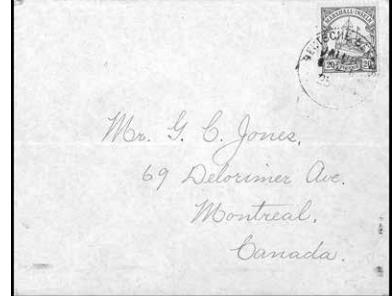 MARSHALL-INSELN
20 20
DEUTSCHE
Mr. G. C. Jones,
69 Delorimer Ave.
Montreal.
Canada.